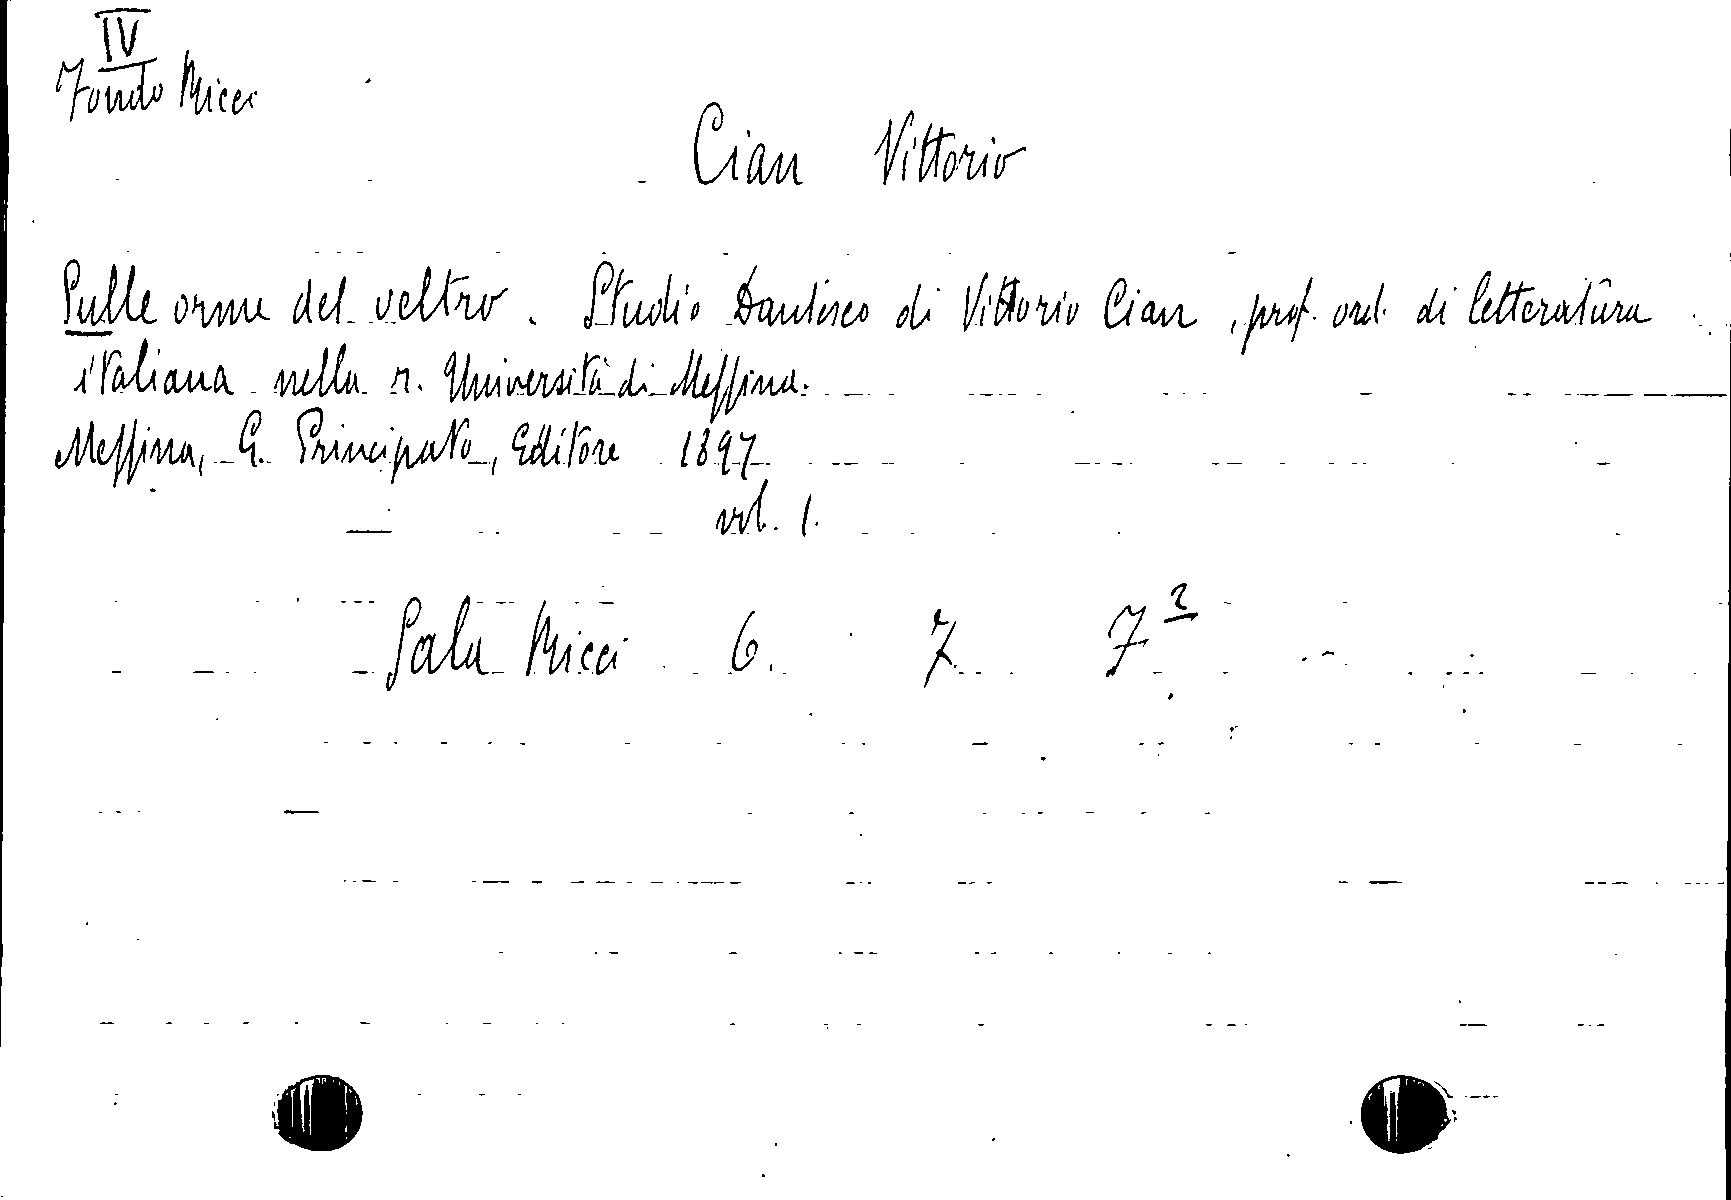 IV
Fondo Ricci
Cian Vittorio
Sulle orme del veltro. Studio Dantesco di Vittorio Cian, prof. ord. di letteratura
italiana nella r. Università di Messina.
Messina, G. Principato, Editore 1897
vol. 1.
Sala Ricci 6. 7 7²